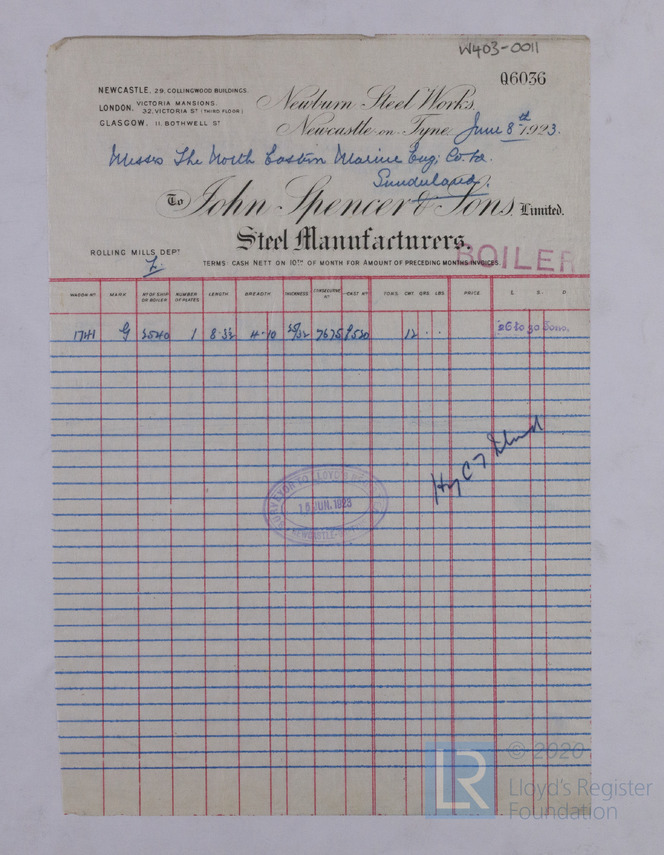 W403-0011
Q6036
NEWCASTLE, 29, COLLINGWOOD BUILDINGS.
LONDON, VICTORIA MANSIONS, 32, VICTORIA ST (THIRD FLOOR)
GLASGOW, 11, BOTHWELL ST
Newburn Steel Works,
Newcastle-on-Tyne, June 8th 1923.
Messrs The North Eastern Marine Eng. Co. Ld.
Sunderland.
To John Spencer & Sons, Limited.
Steel Manufacturers.
ROLLING MILLS DEPT
TERMS: CASH NETT ON 10TH OF MONTH FOR AMOUNT OF PRECEDING MONTHS INVOICES.
BOILER
WAGON No. MARK No OF SHIP OR BOILER NUMBER OF PLATES LENGTH BREADTH THICKNESS CONSECUTIVE No CAST No TONS CWT QRS LBS PRICE £ S. D
1741 G 2540 1 4-10 7675 12 . . 26 to 30 Tons.
SURVEYOR TO LLOYD'S REGISTER
15 JUN. 1923
NEWCASTLE
LR
© 2020
Lloyd's Register
Foundation